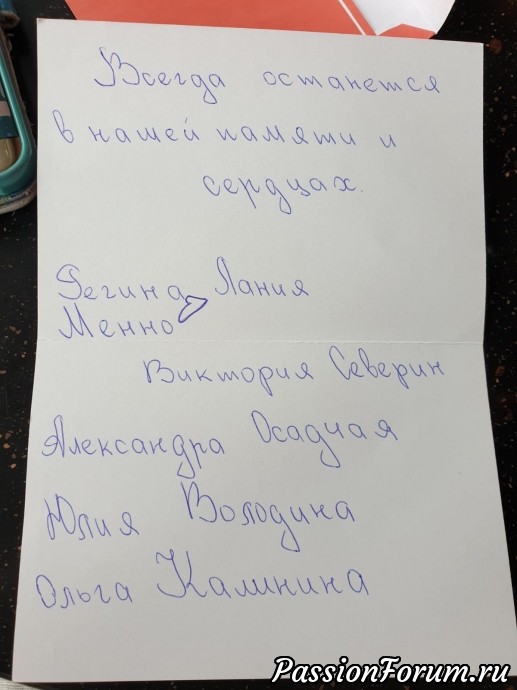 Всегда останется
в нашей памяти и
сердцах.
Регина Лания
Менно
Виктория Северин
Александра Осадчая
Юлия Володина
Ольга Калинина
PassionForum.ru